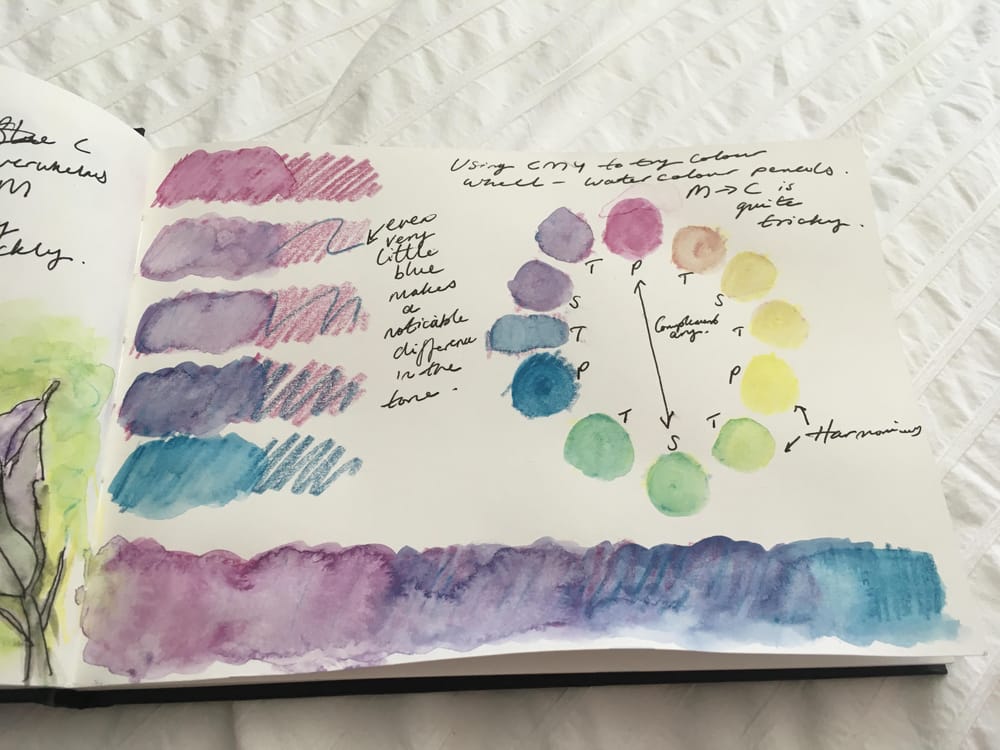 C
M
Using CMY to try colour
wheel – watercolour pencils.
M → C is
quite
tricky.
even
very
little
blue
makes
a
noticable
difference
in the
tone.
T
P
T
S
S
T
T
P
P
T
T
S
Complement
ary.
Harmonious